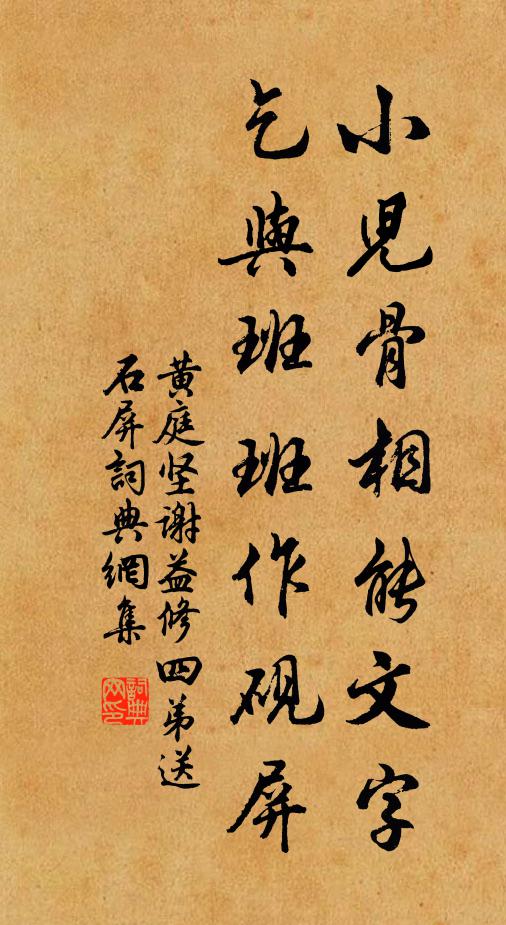 小兒骨相能文字
乞與班班作硯屏
黄庭坚謝益修四弟送
石屏詞典網集
詞典網印